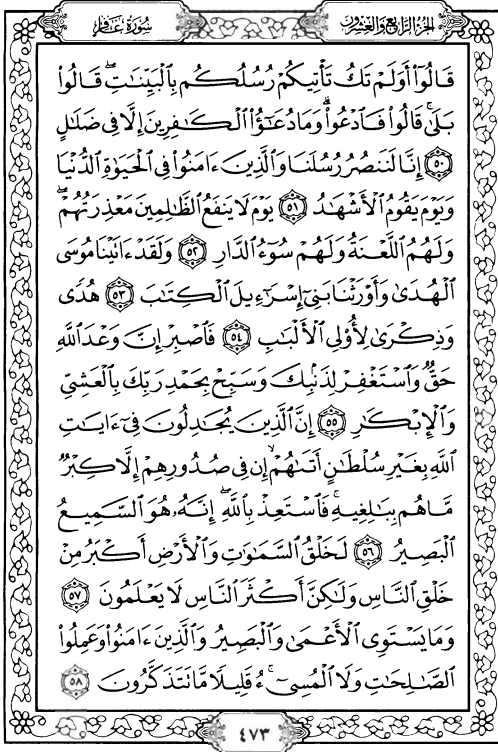 سُورَةُ غَافِر
الجُزْءُ الرَّابِعُ وَالعِشْرُون
قَالُوٓا۟ أَوَلَمْ تَكُ تَأْتِيكُمْ رُسُلُكُم بِٱلْبَيِّنَٰتِ ۖ قَالُوا۟
بَلَىٰ ۚ قَالُوا۟ فَٱدْعُوا۟ ۗ وَمَا دُعَٰٓؤُا۟ ٱلْكَٰفِرِينَ إِلَّا فِى ضَلَٰلٍ
٥٠ إِنَّا لَنَنصُرُ رُسُلَنَا وَٱلَّذِينَ ءَامَنُوا۟ فِى ٱلْحَيَوٰةِ ٱلدُّنْيَا
وَيَوْمَ يَقُومُ ٱلْأَشْهَٰدُ ٥١ يَوْمَ لَا يَنفَعُ ٱلظَّٰلِمِينَ مَعْذِرَتُهُمْ ۖ
وَلَهُمُ ٱللَّعْنَةُ وَلَهُمْ سُوٓءُ ٱلدَّارِ ٥٢ وَلَقَدْ ءَاتَيْنَا مُوسَى
ٱلْهُدَىٰ وَأَوْرَثْنَا بَنِىٓ إِسْرَٰٓءِيلَ ٱلْكِتَٰبَ ٥٣ هُدًى
وَذِكْرَىٰ لِأُو۟لِى ٱلْأَلْبَٰبِ ٥٤ فَٱصْبِرْ إِنَّ وَعْدَ ٱللَّهِ
حَقٌّ وَٱسْتَغْفِرْ لِذَنۢبِكَ وَسَبِّحْ بِحَمْدِ رَبِّكَ بِٱلْعَشِىِّ
وَٱلْإِبْكَٰرِ ٥٥ إِنَّ ٱلَّذِينَ يُجَٰدِلُونَ فِىٓ ءَايَٰتِ
ٱللَّهِ بِغَيْرِ سُلْطَٰنٍ أَتَىٰهُمْ ۙ إِن فِى صُدُورِهِمْ إِلَّا كِبْرٌ
مَّا هُم بِبَٰلِغِيهِ ۚ فَٱسْتَعِذْ بِٱللَّهِ ۖ إِنَّهُۥ هُوَ ٱلسَّمِيعُ
ٱلْبَصِيرُ ٥٦ لَخَلْقُ ٱلسَّمَٰوَٰتِ وَٱلْأَرْضِ أَكْبَرُ مِنْ
خَلْقِ ٱلنَّاسِ وَلَٰكِنَّ أَكْثَرَ ٱلنَّاسِ لَا يَعْلَمُونَ ٥٧
وَمَا يَسْتَوِى ٱلْأَعْمَىٰ وَٱلْبَصِيرُ وَٱلَّذِينَ ءَامَنُوا۟ وَعَمِلُوا۟
ٱلصَّٰلِحَٰتِ وَلَا ٱلْمُسِىٓءُ ۚ قَلِيلًا مَّا تَتَذَكَّرُونَ ٥٨
٤٧٣